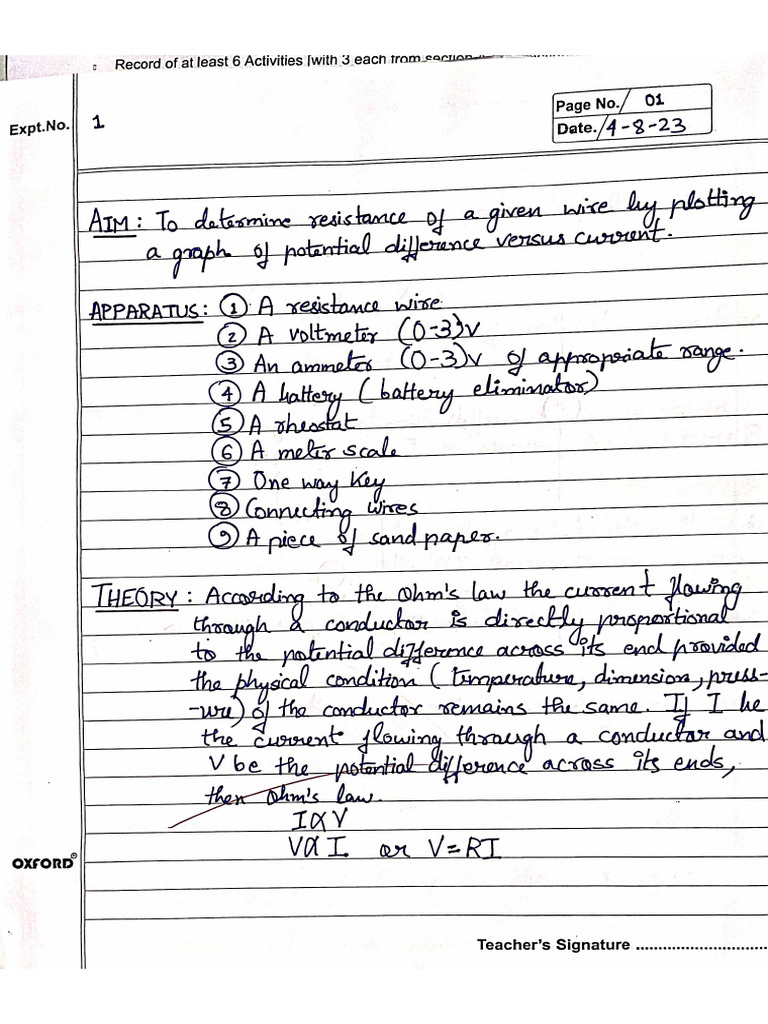 Record of at least 6 Activities [with 3 each from section
Expt.No. 1
Page No. 01
Date. 4-8-23
AIM: To determine resistance of a given wire by plotting
a graph of potential difference versus current.
APPARATUS: ① A resistance wire
② A voltmeter (0-3)V
③ An ammeter (0-3)V of appropriate range.
④ A battery (battery eliminator)
⑤ A rheostat
⑥ A meter scale
⑦ One way key
⑧ Connecting wires
⑨ A piece of sand paper.
THEORY: According to the Ohm's law the current flowing
through a conductor is directly proportional
to the potential difference across its end provided
the physical condition (temperature, dimension, press-
-ure) of the conductor remains the same. If I be
the current flowing through a conductor and
V be the potential difference across its ends,
then Ohm's law.
I α V
V α I or V = RI
OXFORD®
Teacher's Signature .............................